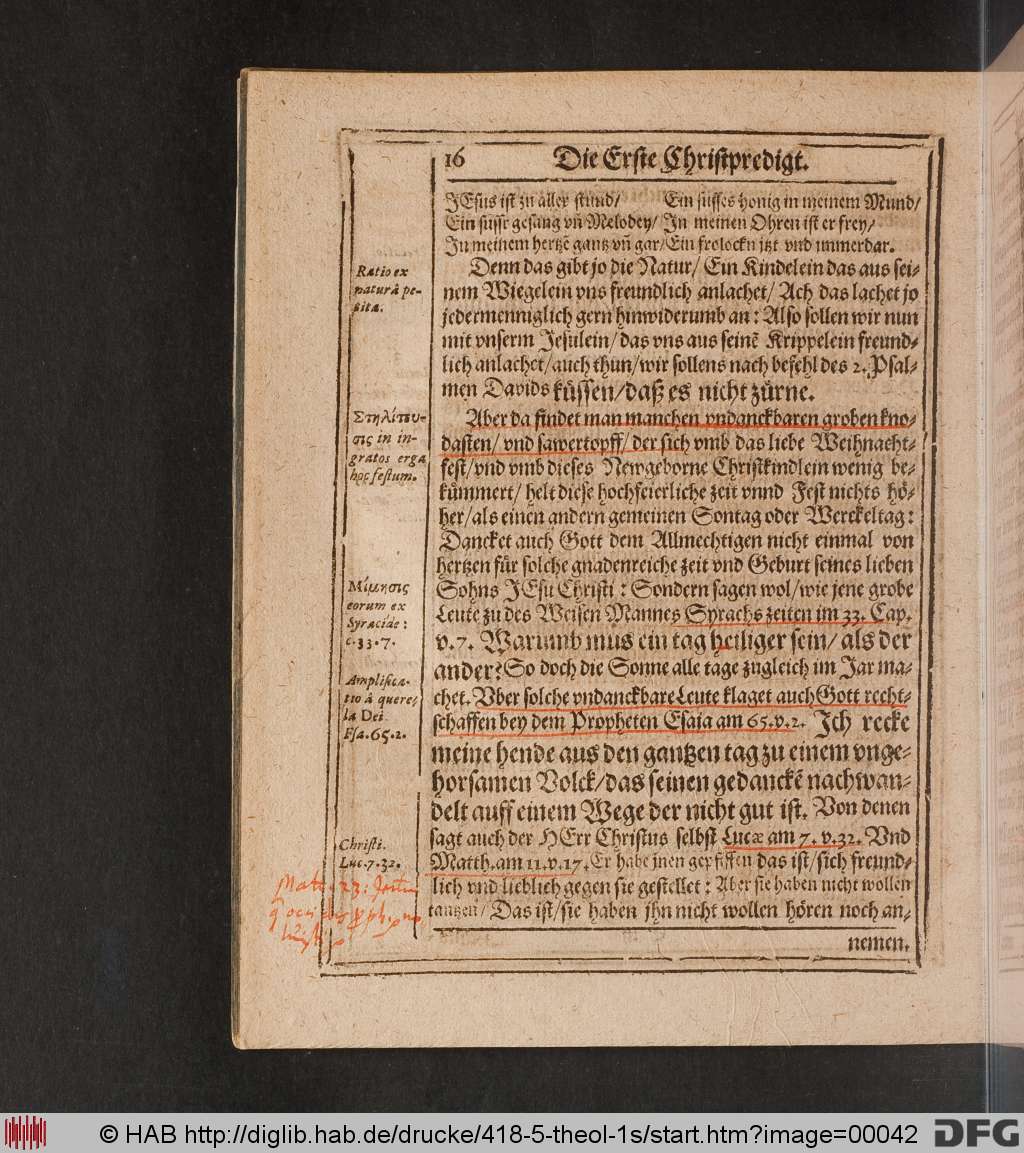 16 Die Erste Christpredigt.
JEsus ist zu aller stund/ Ein süsses honig in meinem Mund/
Ein süssr gesang vñ Melodey/ In meinen Ohren ist er frey/
In meinem hertzẽ gantz vñ gar/ Ein frolockn jtzt vnd immerdar.
Denn das gibt jo die Natur/ Ein Kindelein das aus sei-
nem Wiegelein vns freundlich anlachet/ Ach das lachet jo
jedermenniglich gern hinwiderumb an: Also sollen wir nun
mit vnserm Jesulein/ das vns aus seinẽ Krippelein freund-
lich anlachet/ auch thun/ wir sollens nach befehl des 2. Psal-
men Davids küssen/ daß es nicht zürne.
Aber da findet man manchen vndanckbaren groben kno-
dasten/ vnd sawertopff/ der sich vmb das liebe Weihnacht-
fest/ vnd vmb dieses Newgeborne Christkindlein wenig be-
kümmert/ helt diese hochfeierliche zeit vnnd Fest nichts hö-
her/ als einen andern gemeinen Sontag oder Werckeltag:
Dancket auch Gott dem Allmechtigen nicht einmal von
hertzen für solche gnadenreiche zeit vnd Geburt seines lieben
Sohns JEsu Christi: Sondern sagen wol/ wie jene grobe
Leute zu des Weisen Mannes Syrachs zeiten im 33. Cap.
v. 7. Warumb mus ein tag heiliger sein/ als der
ander? So doch die Sonne alle tage zugleich im Jar ma-
chet. Vber solche vndanckbare Leute klaget auch Gott recht-
schaffen bey dem Propheten Esaia am 65. v. 2. Ich recke
meine hende aus den gantzen tag zu einem vnge-
horsamen Volck/ das seinen gedanckẽ nachwan-
delt auff einem Wege der nicht gut ist. Von denen
sagt auch der HErr Christus selbst Lucæ am 7. v. 32. Vnd
Matth. am 11. v. 17. Er habe jnen gepfiffen das ist/ sich freund-
lich vnd lieblich gegen sie gestellet: Aber sie haben nicht wollen
tantzen/ Das ist/ sie haben jhn nicht wollen hören noch an-
nemen.
Ratio ex
naturâ pe-
tita.
Στηλίτευ-
σις in in-
gratos erga
hoc festum.
Μίμησις
eorum ex
Syracide:
c. 33. 7.
Amplifica-
tio à quere-
la Dei
Esa. 65. 2.
Christi.
Luc. 7. 32.
© HAB http://diglib.hab.de/drucke/418-5-theol-1s/start.htm?image=00042
DFG